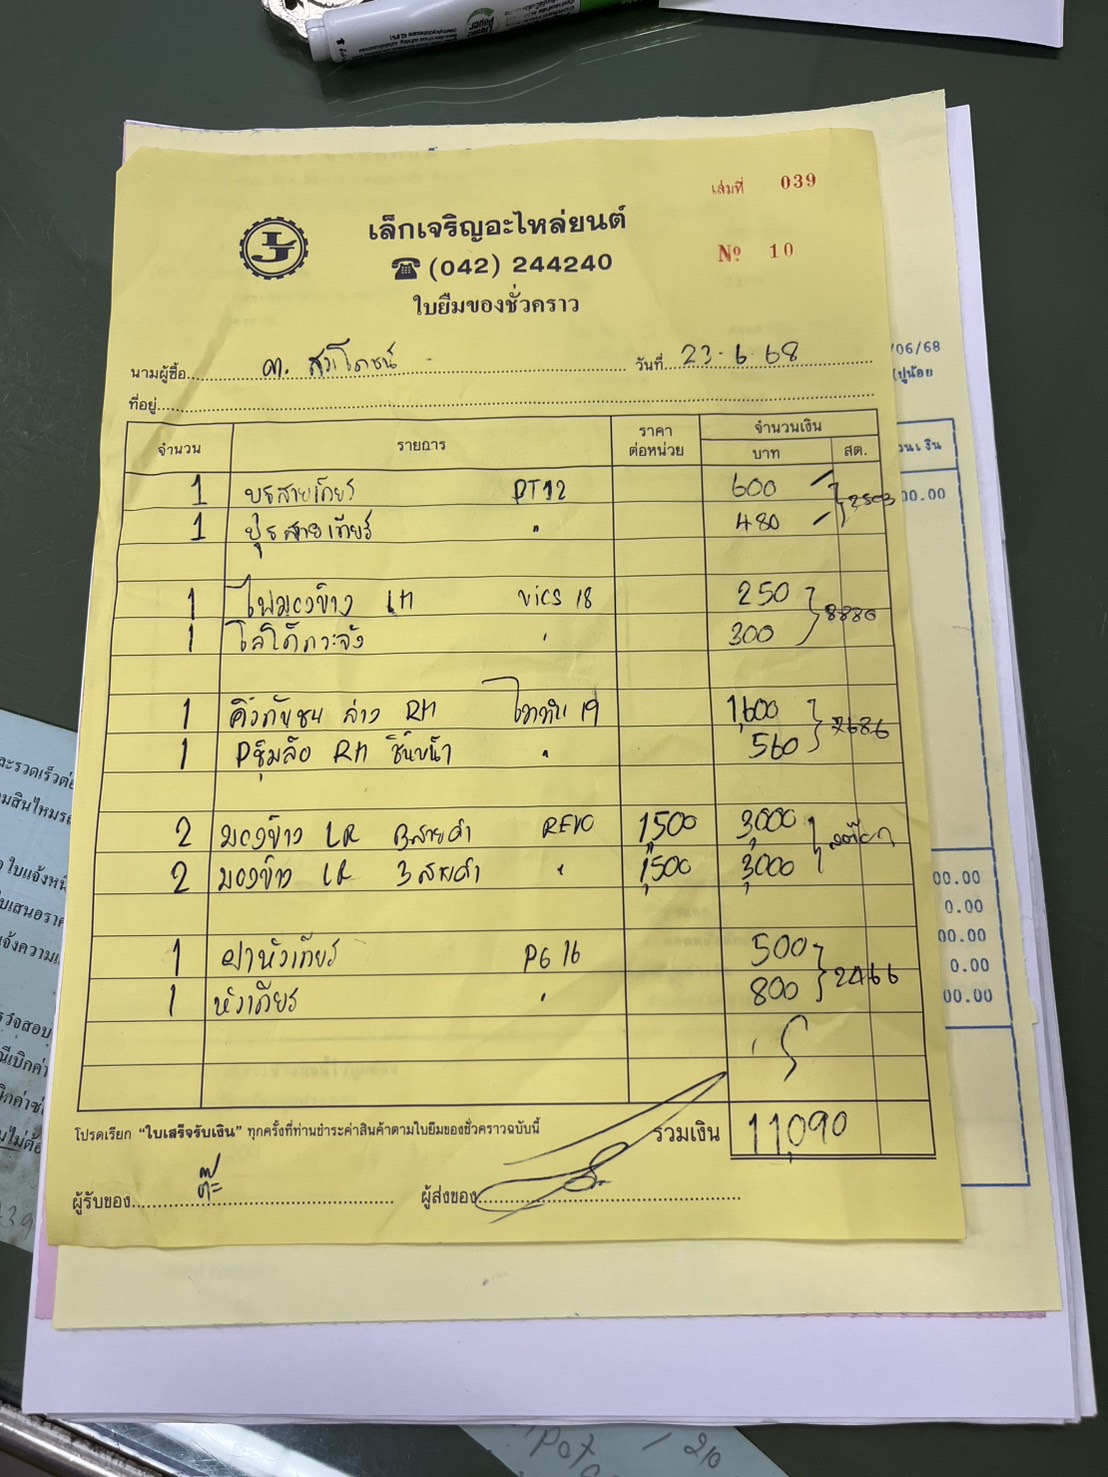 เล่มที่ 039
เล็กเจริญอะไหล่ยนต์
(042) 244240
Nº 10
ใบยืมของชั่วคราว
นามผู้ซื้อ วันที่ 23-6-68
ที่อยู่
จำนวน รายการ ราคาต่อหน่วย จำนวนเงิน
บาท สต.
1 สายเกียร์ DT12 600 2503
1 สายเกียร์ " 480
1 ไฟมองข้าง LH vics 18 250 8886
1 โลโก้กระจัง " 300
1 คิ้วกันชน ล่าง RH 19 1,600 7686
1 ซุ้มล้อ RH ชิ้นหน้า " 560
2 มองข้าง LR 3สายดำ REVO 1,500 3,000 สต๊อก
2 มองข้าง LR 3 สายดำ " 1,500 3,000
1 ฝาหัวเกียร์ PG 16 500 2466
1 หัวเกียร์ " 800
โปรดเรียก "ใบเสร็จรับเงิน" ทุกครั้งที่ท่านชำระค่าสินค้าตามใบยืมของชั่วคราวฉบับนี้ รวมเงิน 11,090
ผู้รับของ ผู้ส่งของ
/06/68
(ปูน้อย
00.00
00.00
0.00
00.00
0.00
00.00